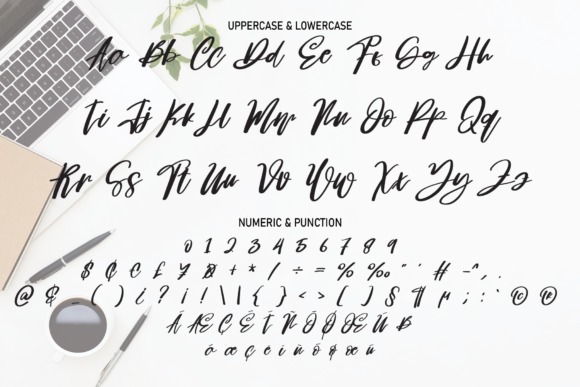 UPPERCASE & LOWERCASE
Aa Bb Cc Dd Ee Ff Gg Hh
Ii Jj Kk Ll Mm Nn Oo Pp Qq
Rr Ss Tt Uu Vv Ww Xx Yy Zz
NUMERIC & PUNCTION
0 1 2 3 4 5 6 7 8 9
$ ¢ € £ ¥ ¤ + * / ÷ = % ‰ " ' # - ^ , .
@ & _ ( ) ¿ ? ¡ ! \ | { } < > [ ] § ¶ µ ; : ` © ®